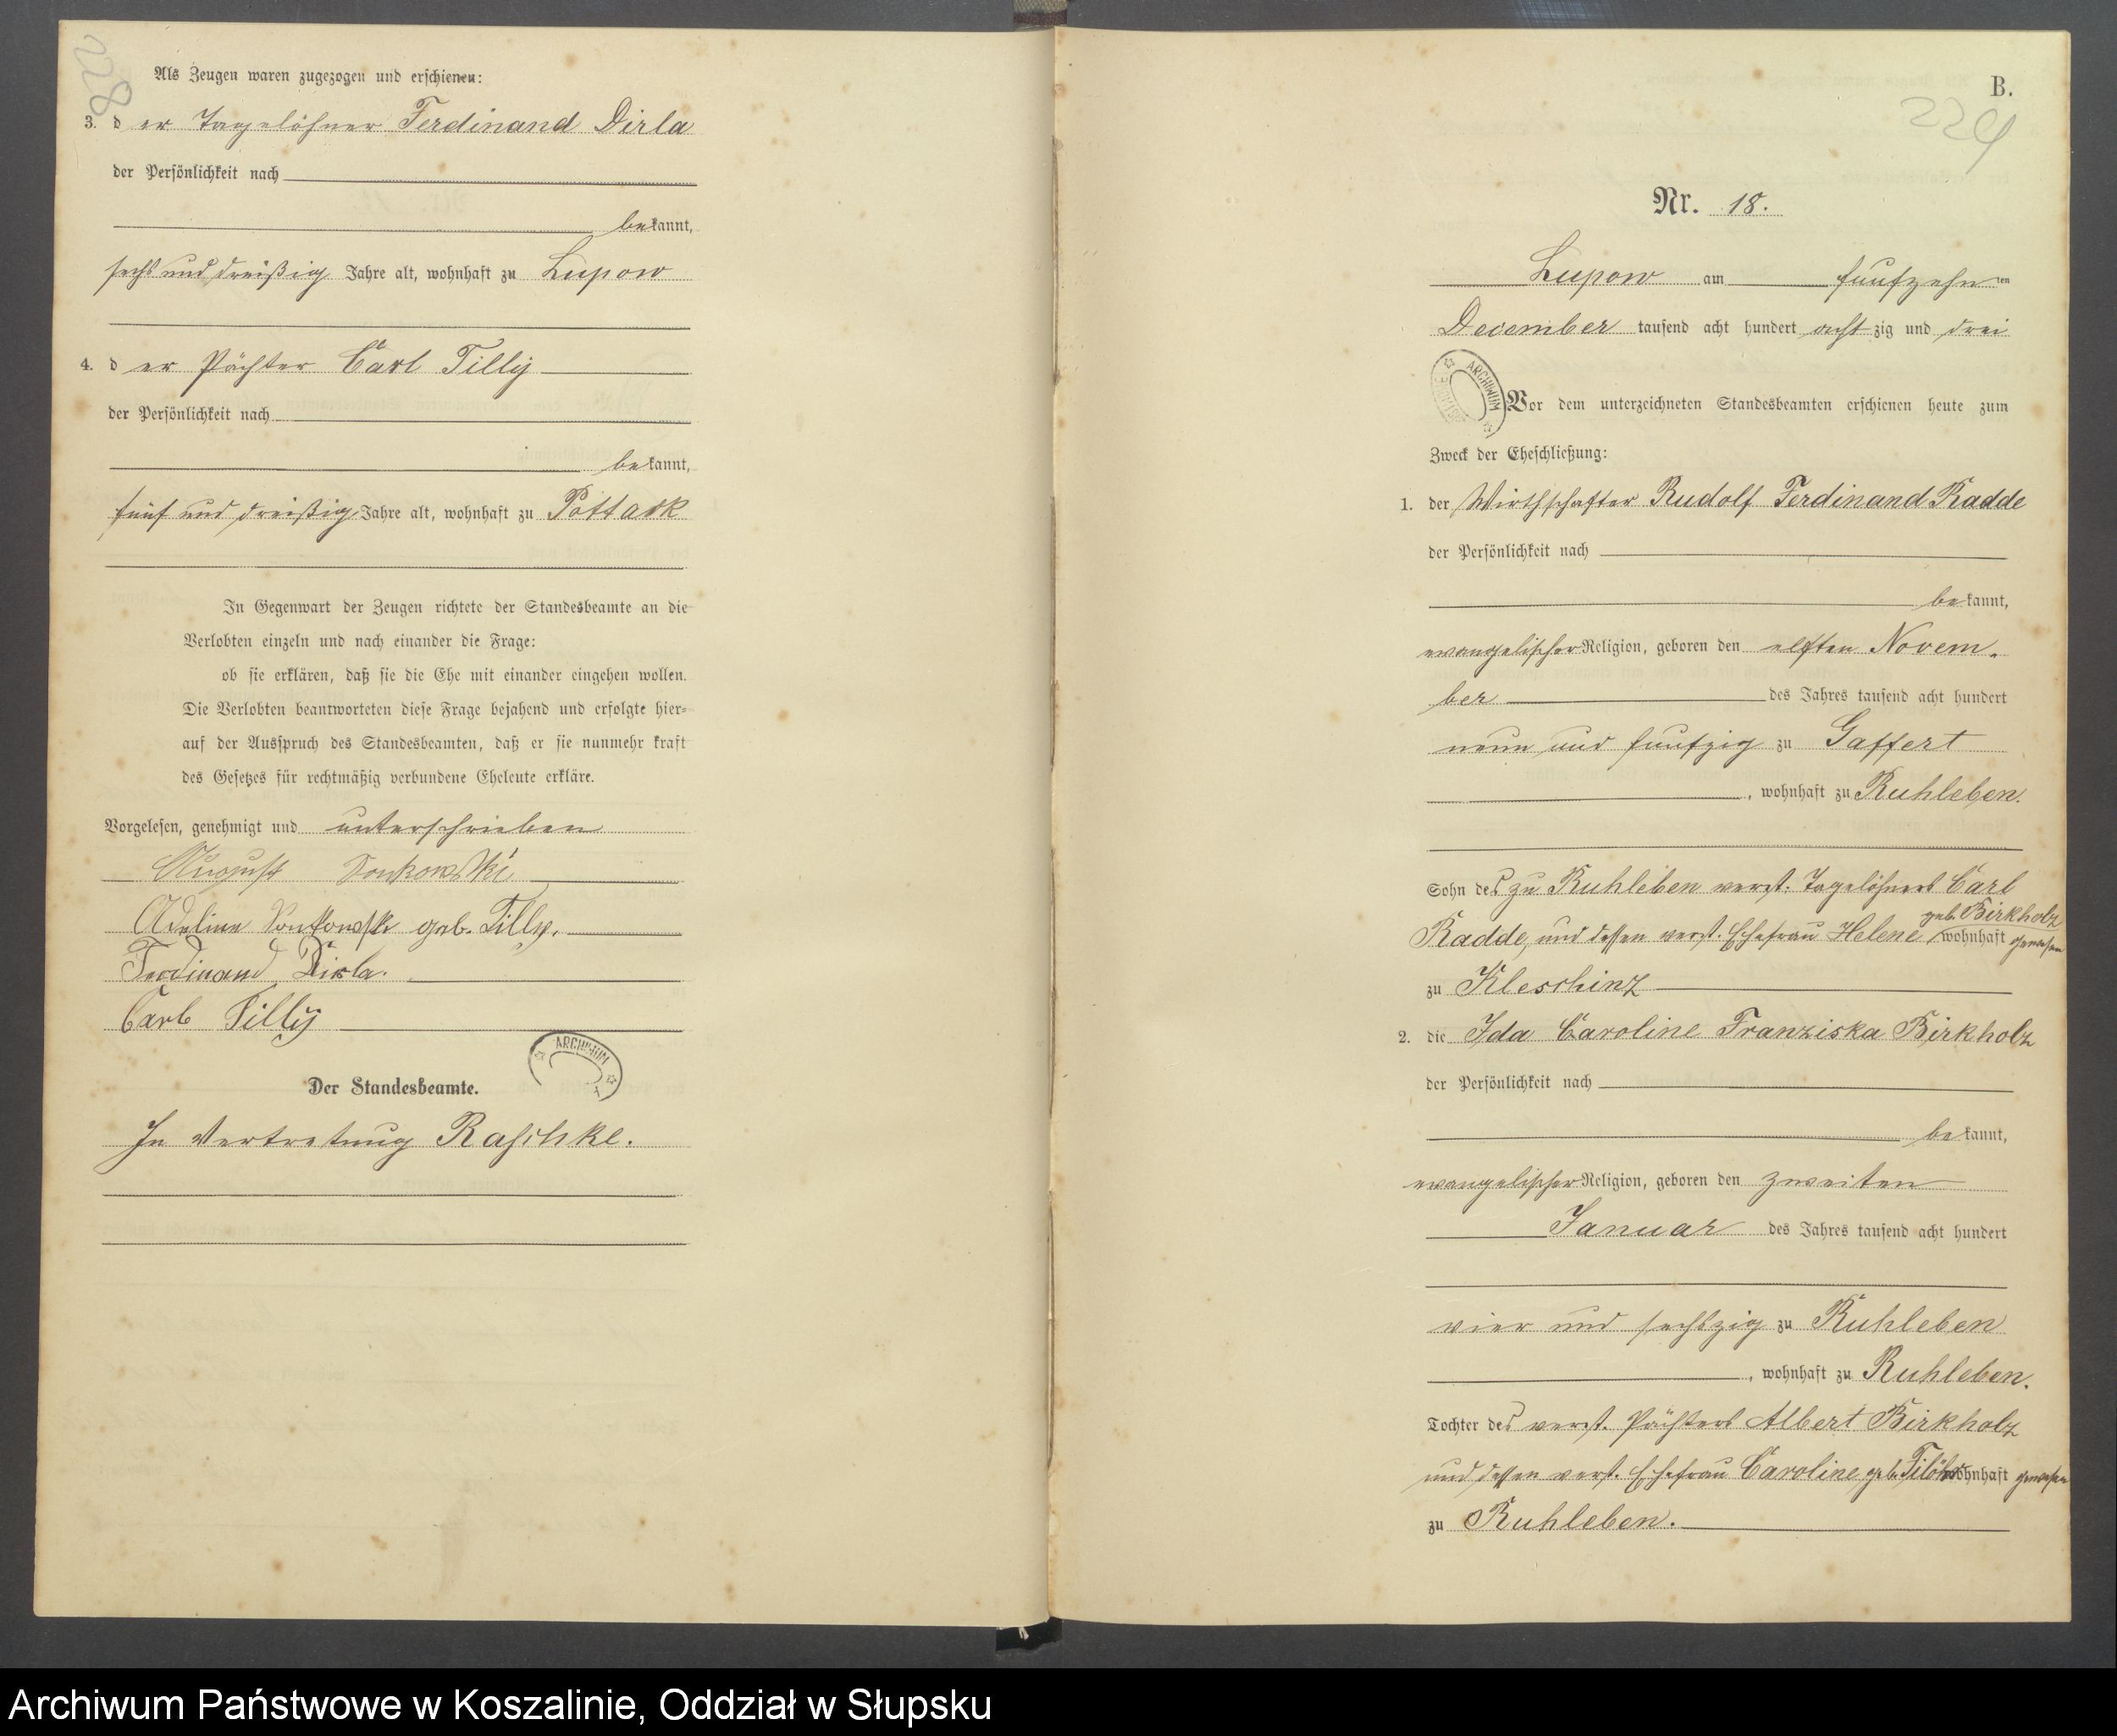 228
Als Zeugen waren zugezogen und erschienen:
3. der Tagelöhner Ferdinand Dirla
der Persönlichkeit nach
bekannt,
sechs und dreißig Jahre alt, wohnhaft zu Lupow
4. der Pächter Carl Tilly
der Persönlichkeit nach
bekannt,
fünf und dreißig Jahre alt, wohnhaft zu Pottack
In Gegenwart der Zeugen richtete der Standesbeamte an die
Verlobten einzeln und nach einander die Frage:
ob sie erklären, daß sie die Ehe mit einander eingehen wollen.
Die Verlobten beantworteten diese Frage bejahend und erfolgte hier-
auf der Ausspruch des Standesbeamten, daß er sie nunmehr kraft
des Gesetzes für rechtmäßig verbundene Eheleute erkläre.
Vorgelesen, genehmigt und unterschrieben
August
Adeline geb. Tilly.
Ferdinand Dirla.
Carl Tilly
ARCHIWUM
Der Standesbeamte.
In Vertretung Raschke.
B.
229
Nr. 18.
Lupow am funfzehnten
December tausend acht hundert achtzig und drei
ARCHIWUM
Vor dem unterzeichneten Standesbeamten erschienen heute zum
Zweck der Eheschließung:
1. der Wirthschafter Rudolf Ferdinand Radde
der Persönlichkeit nach
bekannt,
evangelischer Religion, geboren den elften Novem-
ber des Jahres tausend acht hundert
neun und funfzig zu Gaffert
, wohnhaft zu Ruhleben.
Sohn des zu Ruhleben verst. Tagelöhners Carl
Radde, und dessen verst. Ehefrau Helene geb. Birkholz wohnhaft gewesen
zu Kleschinz
2. die Ida Caroline Franziska Birkholz
der Persönlichkeit nach
bekannt,
evangelischer Religion, geboren den zweiten
Januar des Jahres tausend acht hundert
vier und sechszig zu Ruhleben
, wohnhaft zu Ruhleben.
Tochter des verst. Pächters Albert Birkholz
und dessen verst. Ehefrau Caroline geb. wohnhaft gewesen
zu Ruhleben.
Archiwum Państwowe w Koszalinie, Oddział w Słupsku